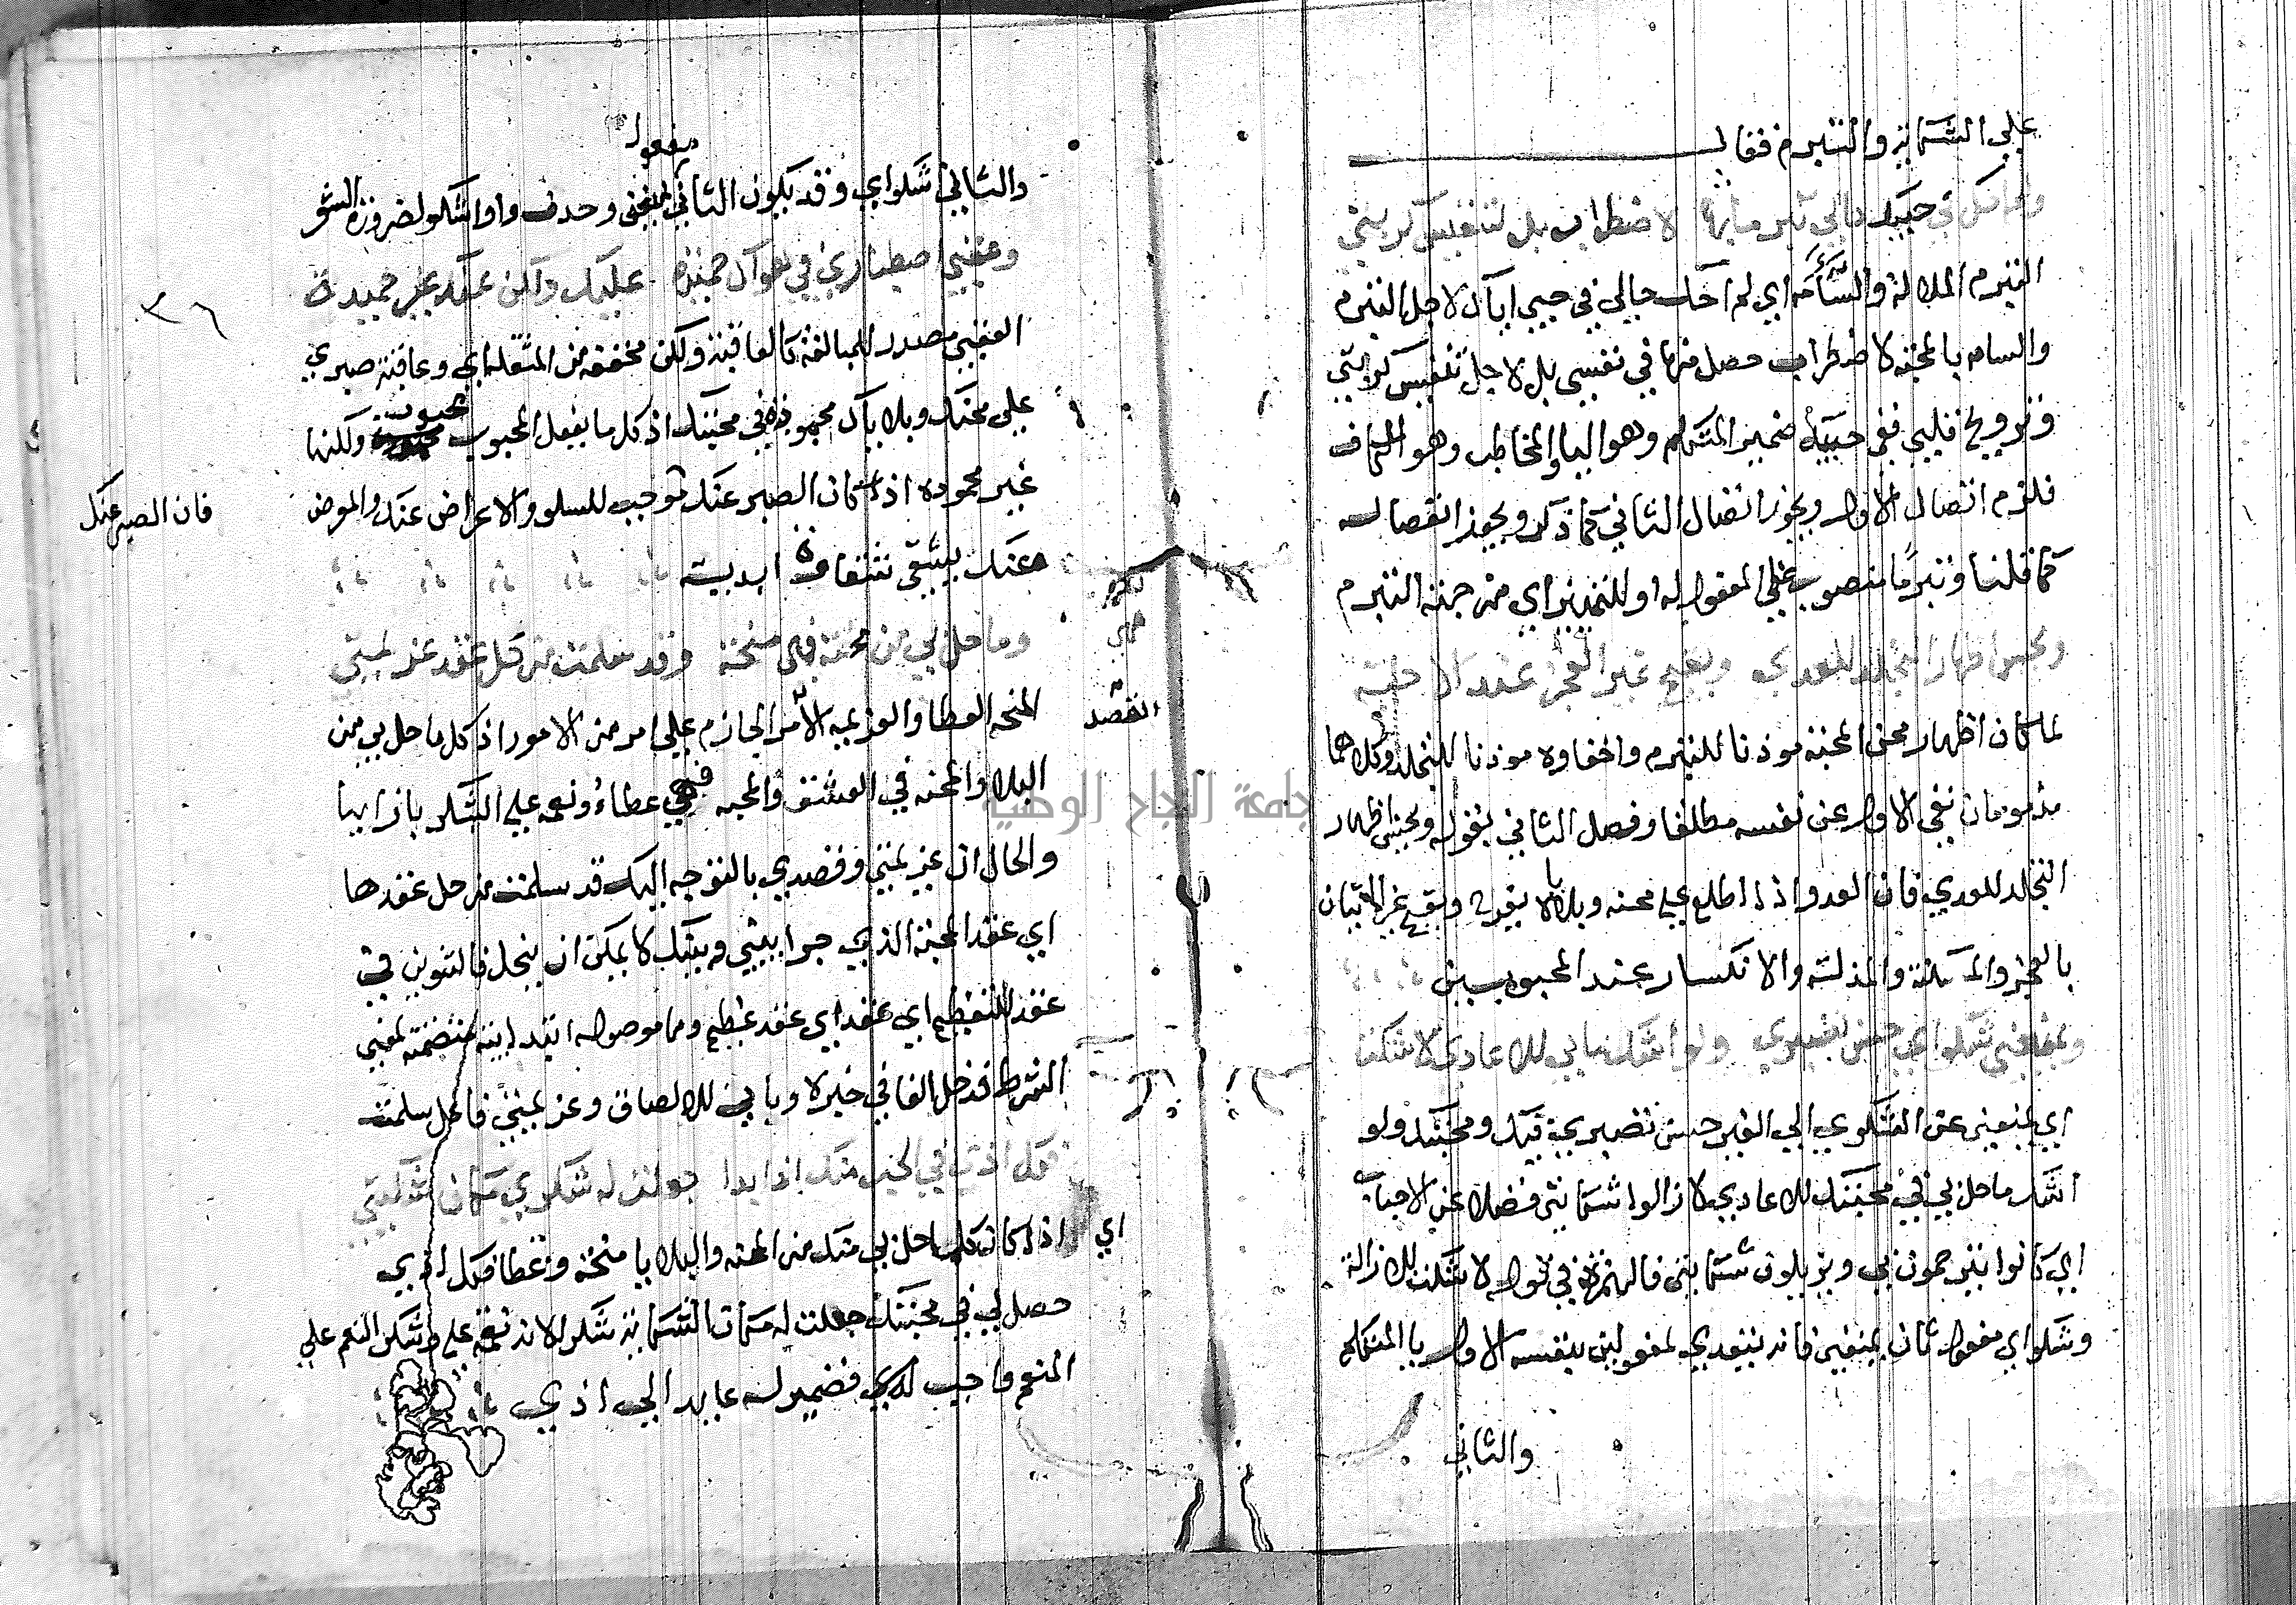 علي الشكاية والتبرم فقال
ولم احك في حبيك حالي تبرما بها لاضطراب بل لتنفيس كربتي
التبرم الملالة والسآمة اي لم احك حالي في حبي اياك لاجل التبرم
والسامه بالمحنة لاضطراب حصل منها في نفسي بل لاجل تنفيس كربتي
وترويح قلبي ففي حبيك ضمير المتكلم وهو اليا والمخاطب وهو الكاف
فلزم اتصال الاول ويجوز اتصال الثاني كما ذكر ويجوز انفصاله
كما قلنا وتبرما منصوب علي المفعول له او للتمييز اي من جهة التبرم
ويحسن اظهار التجلد للعدي ويقبح غير العجز عند الاحبة
لما كان اظهار محن المحبة موذنا للتبرم واخفاوه موذنا للتجلد وكلاهما
مذمومان نفي الاول عن نفسه مطلقا وفصل الثاني بقوله ويحسن اظهار
التجلد للعدي فان العدو اذا اطلع علي محنه وبلايا يفرح ويقبح غير الاتيان
بالعجز والمسكنة والمذلة والانكسار عند المحبوبين
ويمنعني شكواي حسن تصبري ولو اشك ما بي للاعادي لاشكت
اي يمنعني عن الشكوي الي الغير حسن تصبري فيك ومحبتك ولو
اشك ما حل بي في محبتك للاعادي لازالوا شكايتي فضلا عن الاحباب
اي كانوا يترحمون بي ويزيلون شكايتي فالهمزة في قوله لاشكت للازالة
وشكواي مفعول ثان ليمنعني فانه يتعدي لمفعولين بنفسه الاول يا المتكلم
والثاني
والثاني شكواي وقد يكون الثاني مفعول يمنعني وحدف واو اشكو لضرورة الشعر
٣٦
وعقبي اصطباري في هواك حميدة عليك ولكن عنك غير حميدة
العقبي مصدر للمبالغة كالعاقبة ولكن مخففه من المثقلة اي وعاقبة صبري
علي محنك وبلاياك محموده في محبتك اذ كل ما يفعل المحبوب محبوب ولكنها
غير محموده اذا كان الصبر عنك فان الصبر عنك موجب للسلو والاعراض عنك والمعرض
عنك يبتقي شقاوة ابدية
وما حل بي من محنة فهي منحة وقد سلمت من حل عقد عزيمتي
المنحه العطا والعزيمه القصد الامر الجازم علي امر من الامور اذ كل ما حل بي من
البلا والمحنه في العشق والمحبه فهي عطاء ونعمه علي الشكر بازايها
والحال ان عزيمتي وقصدي بالتوجه اليك قد سلمت من حل عقدها
اي عقد المحبة الذي جرا بيني وبينك لا يمكن ان ينحل فالتنوين في
عقد للتعظيم اي عقد اي عقد عظيم وما موصوله ابتدايية متضمنة لمعني
الشرط فدخل الفا في خبره وبا بي للالصاق وعزيمتي فاعل سلمت
فكل اذي في الحب منك اذا بدا جعلت له شكري مكان شكيتي
اي اذا كان كلما حل بي منك من المحنه والبلايا منحة وعطا فكل اذي
حصل لي في محبتك جعلت له مكان الشكاية شكرا لانه نعمة علي وشكر النعم علي
المنعم واجب لدي فضمير له عايد الي اذي